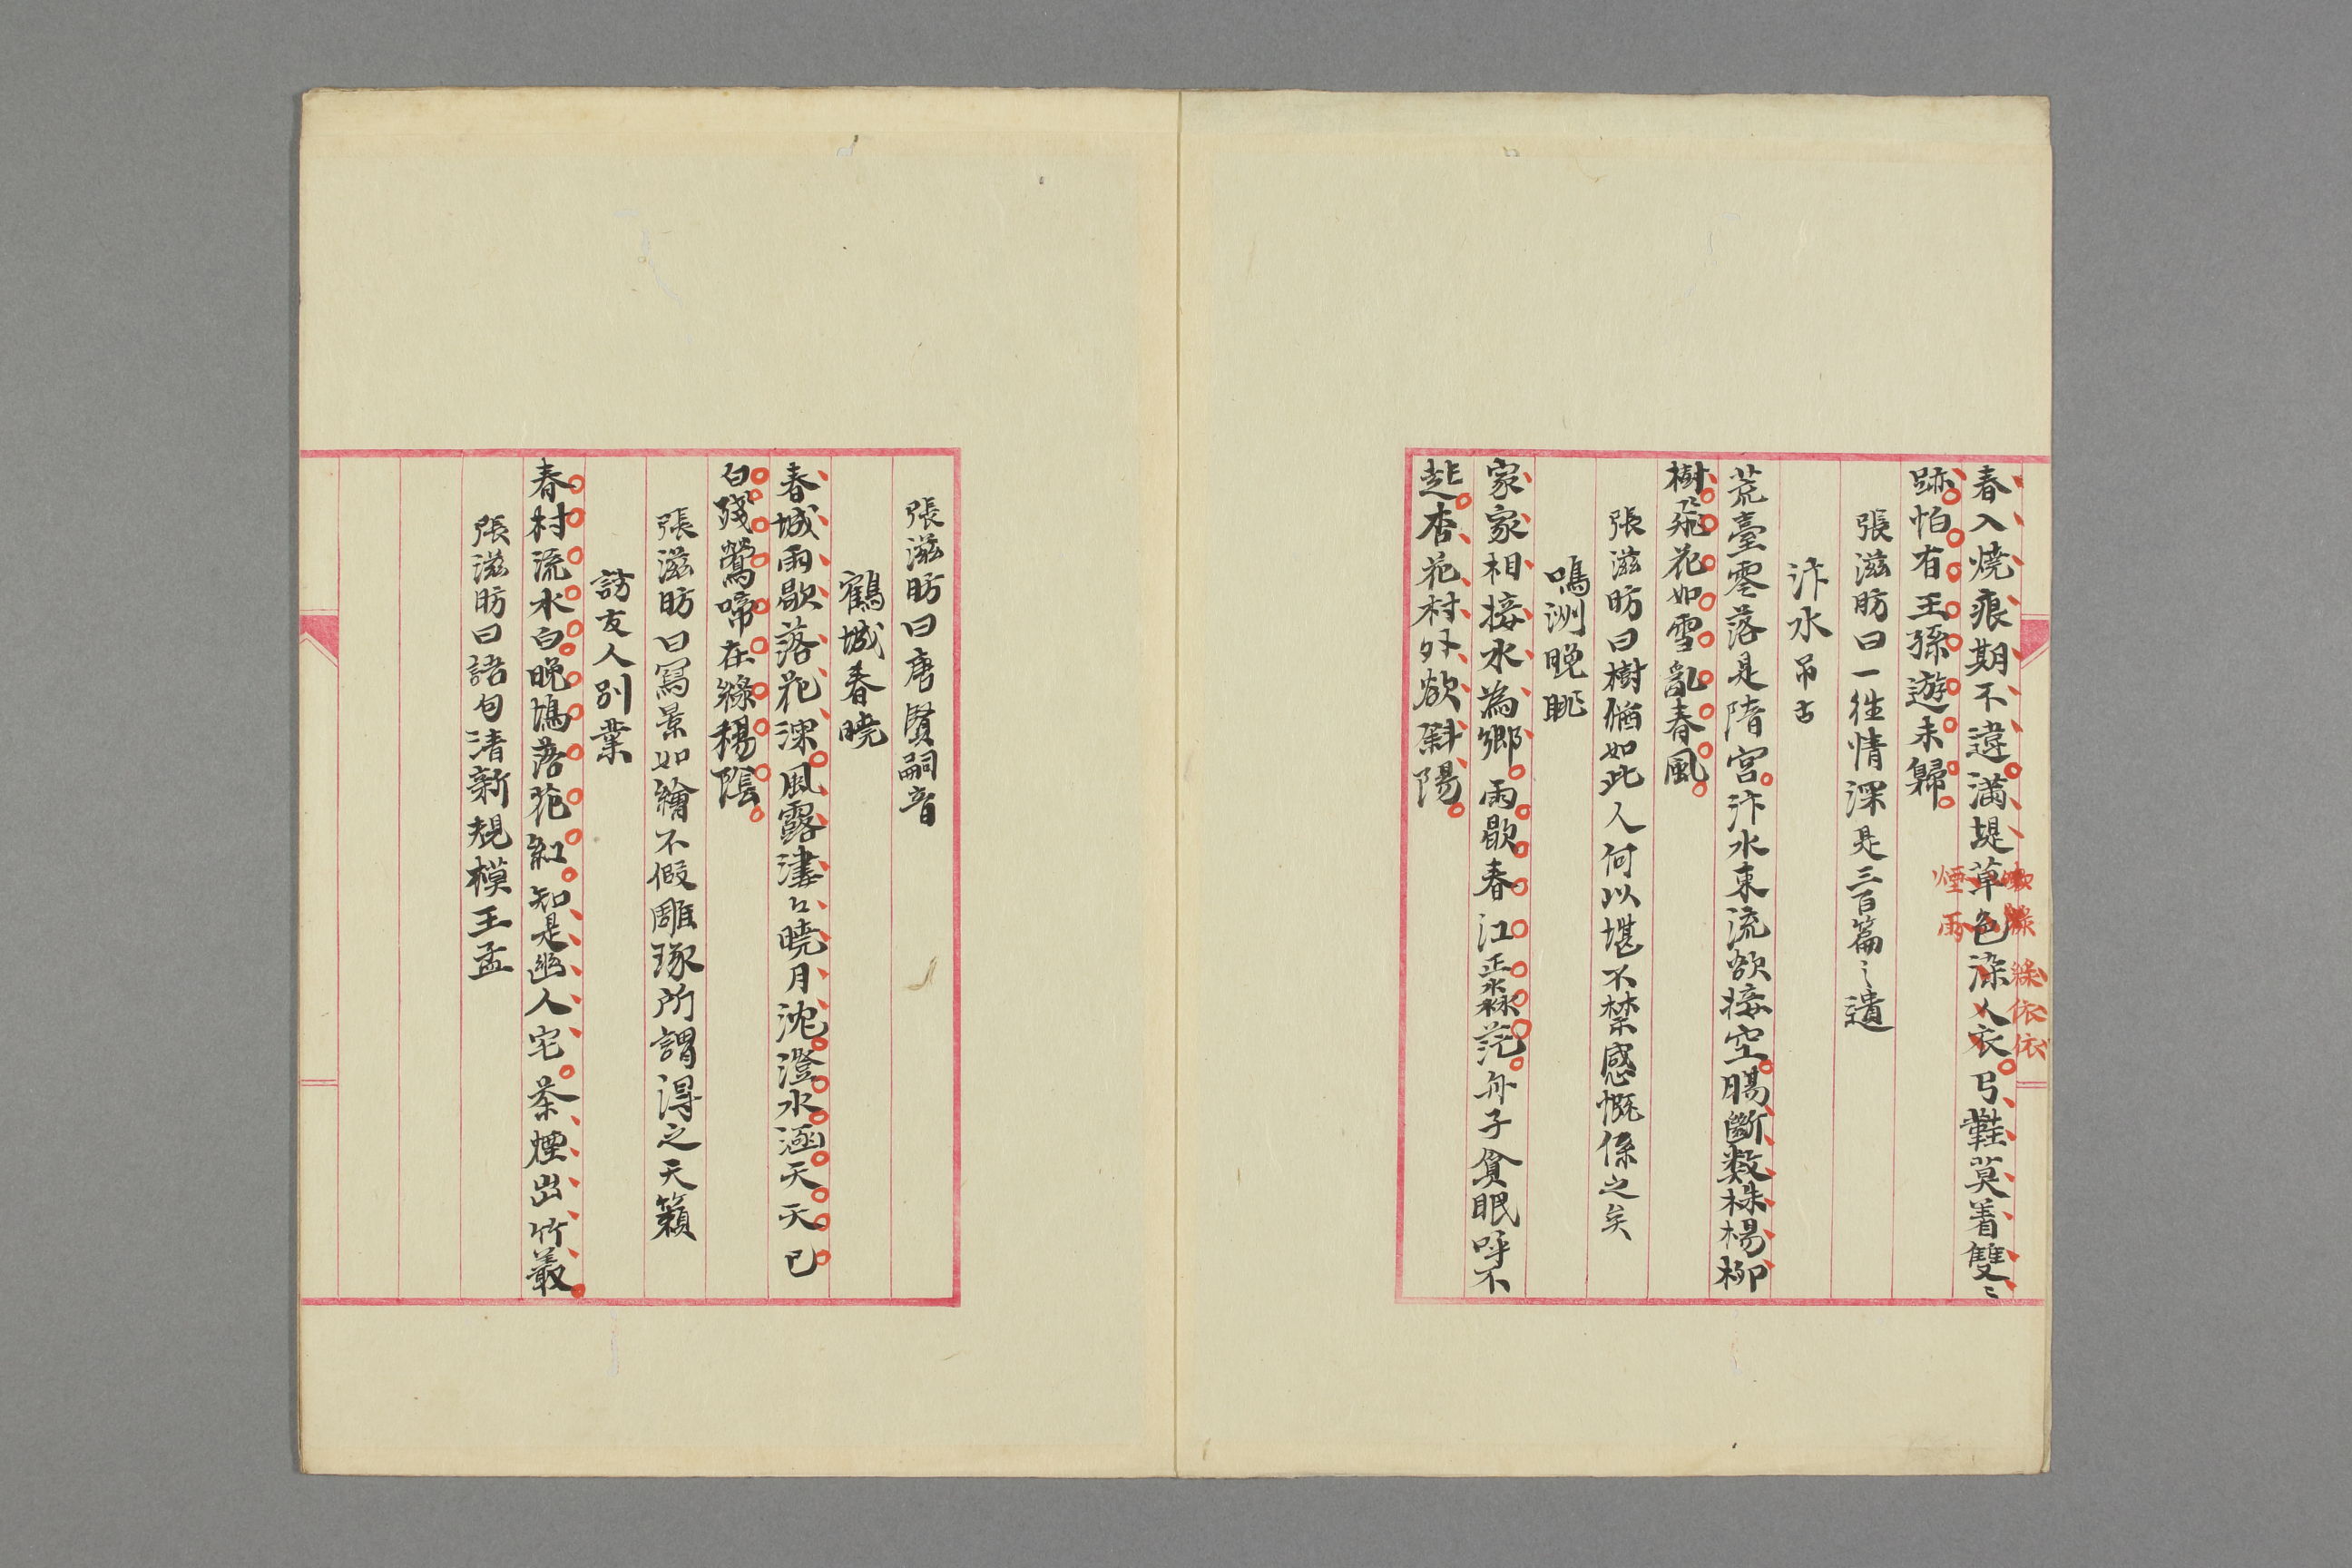 春入燒痕期不違滿堤草色染人衣弓鞋莫着雙〻
綠依依
煙雨
跡怕有王孫遊未歸
張滋昉曰一往情深是三百篇之遺
汴水吊古
荒臺零落是隋宮汴水東流欲接空腸斷数株楊柳
樹飛花如雪亂春風
張滋昉曰樹猶如此人何以堪不禁感慨係之矣
鳴洲晚眺
家家相接水為鄉雨歇春江正淼茫舟子貪眠呼不
起杏花村外欲斜陽
張滋昉曰唐賢嗣音
鶴城春曉
春城雨歇落花深風露淒〻曉月沈澄水涵天天已
白殘鶯啼在綠楊陰
張滋昉曰寫景如繪不假雕琢所謂得之天籟
訪友人別業
春村流水白晚塢落花紅知是幽人宅茶煙出竹叢
張滋昉曰語句清新規模王孟